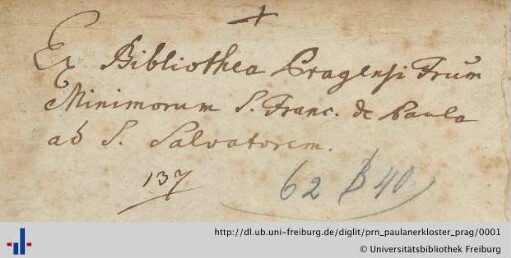 +
Ex Bibliothea Pragensi Frum̃
Minimorum S. Franc. de Paula
ad S. Salvatorem.
137
62 B 40
http://dl.ub.uni-freiburg.de/diglit/prn_paulanerkloster_prag/0001
© Universitätsbibliothek Freiburg